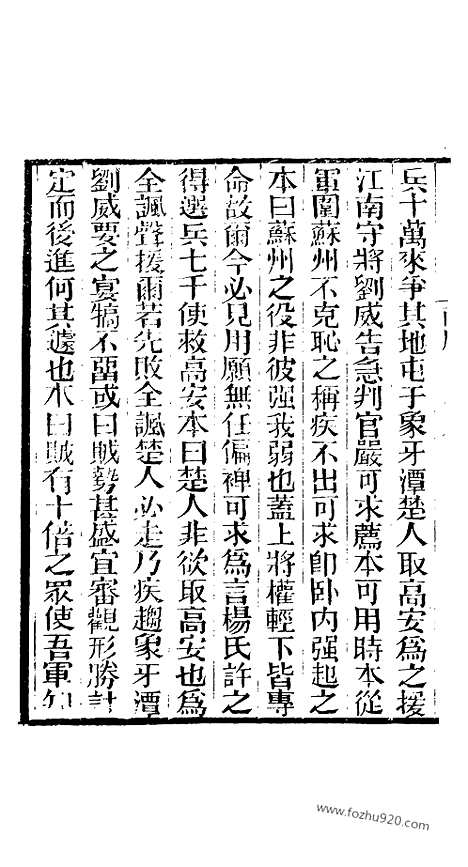 兵十萬來爭其地屯于象牙潭楚人取高安爲之援
江南守將劉威告急判官嚴可求薦本可用時本從
軍圍蘇州不克恥之稱疾不出可求即卧内强起之
本曰蘇州之役非彼强我弱也蓋上將權輕下皆專
命故爾今必見用願無任偏裨可求爲言楊氏許之
得選兵七千使救高安本曰楚人非欲取高安也爲
全諷聲援爾若先敗全諷楚人必走乃疾趨象牙潭
劉威要之宴犒不畱或曰賊勢甚盛宜審觀形勝計
定而後進何其遽也本曰賊有十倍之眾使吾軍知
www.fozhu920.com